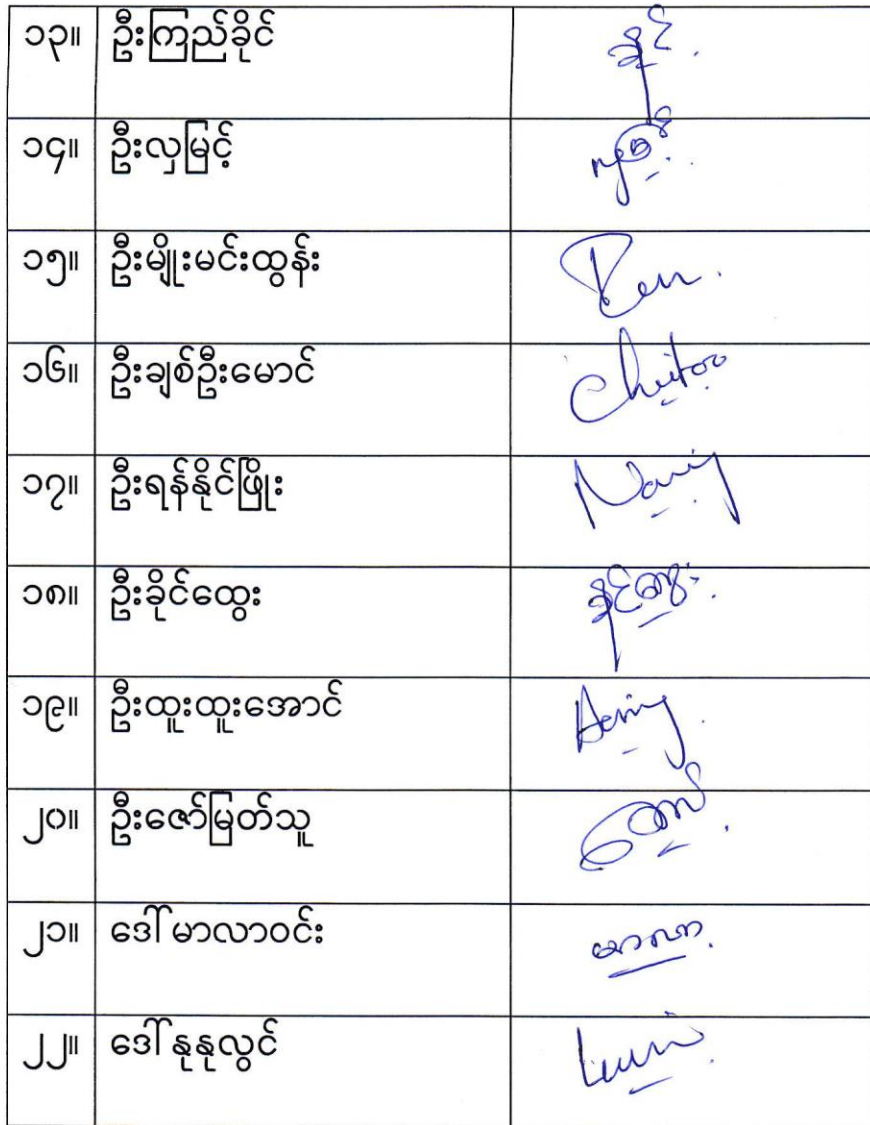 ၁၃။ ဦးကြည်ခိုင်
၁၄။ ဦးလှမြင့်
၁၅။ ဦးမျိုးမင်းထွန်း
၁၆။ ဦးချစ်ဦးမောင်
၁၇။ ဦးရန်နိုင်ဖြိုး
၁၈။ ဦးခိုင်ထွေး ခိုင်ထွေး
၁၉။ ဦးထူးထူးအောင်
၂၀။ ဦးဇော်မြတ်သူ
၂၁။ ဒေါ်မာလာဝင်း မာလာ
၂၂။ ဒေါ်နုနုလွင်